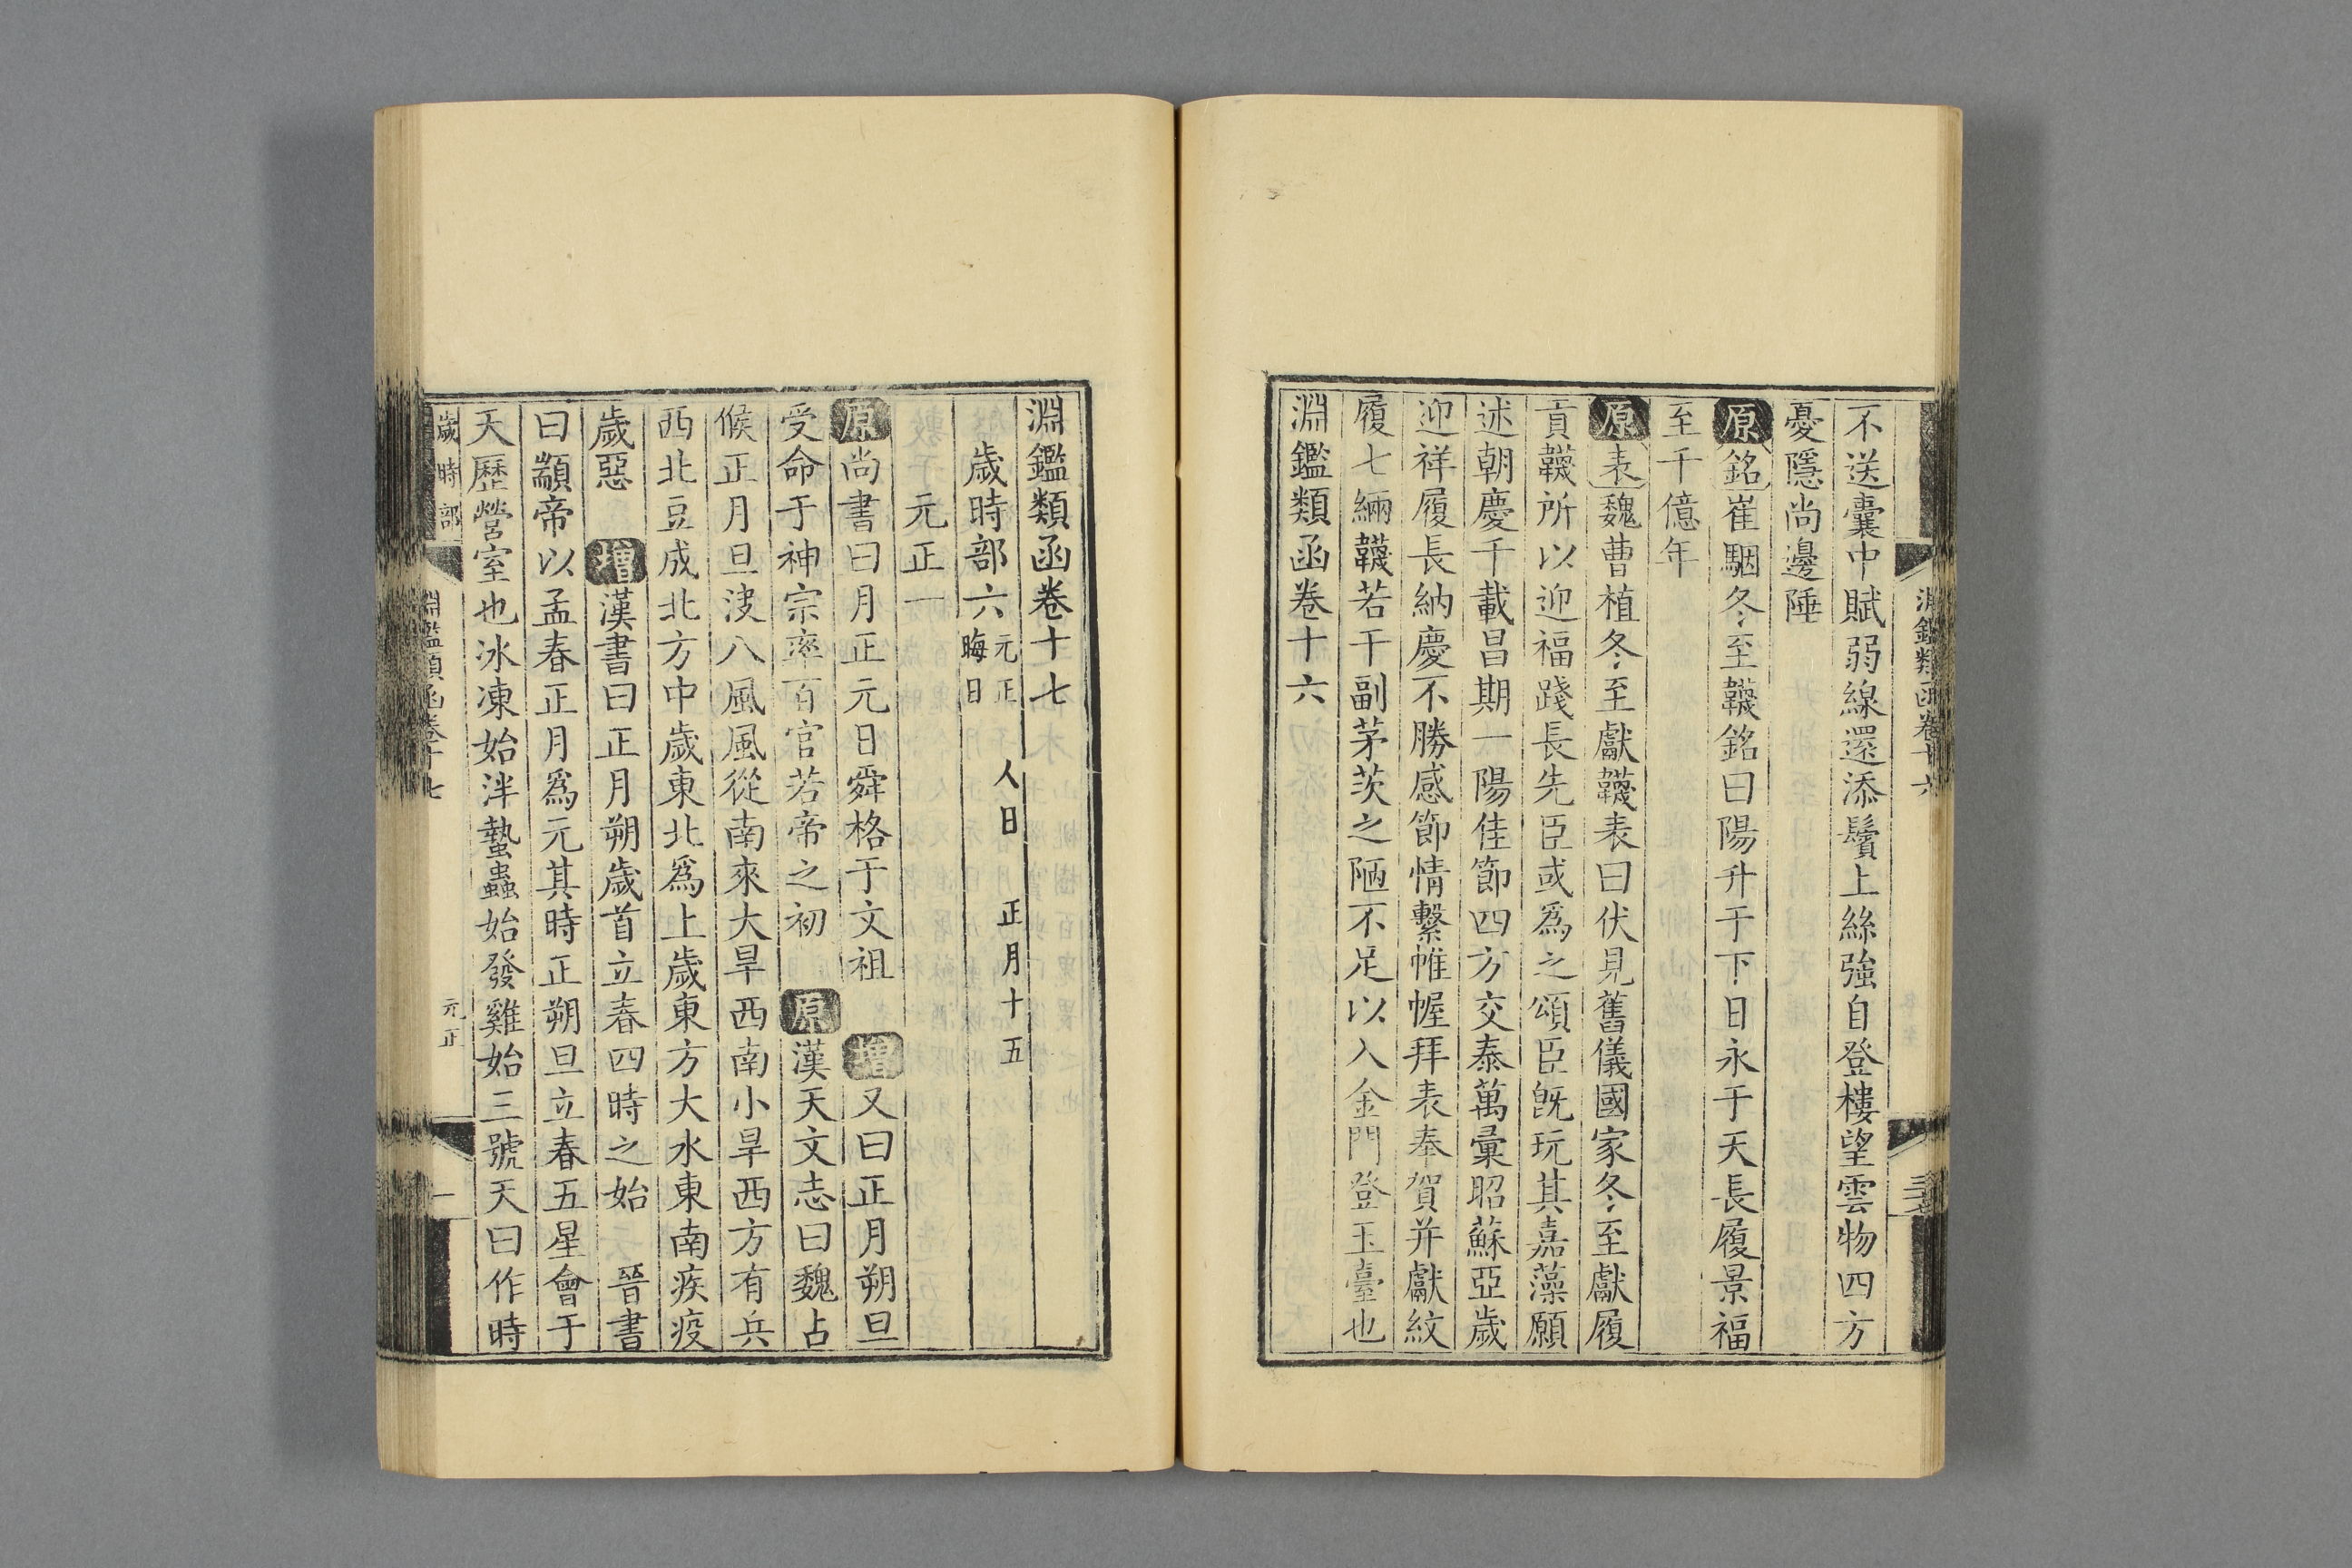 不送囊中賦弱線還添鬢上絲強自登樓望雲物四方
憂隱尚邊陲
原銘崔駰冬至韈銘曰陽升于下日永于天長履景福
至千億年
原表魏曹植冬至獻韈表曰伏見舊儀國家冬至獻履
貢韈所以迎福踐長先臣或爲之頌臣旣玩其嘉藻願
述朝慶千載昌期一陽佳節四方交泰萬彙昭蘇亞歲
迎祥履長納慶不勝感節情繫帷幄拜表奉賀并獻紋
履七緉韈若干副茅茨之陋不足以入金門登玉臺也
淵鑑類函卷十六
淵鑑類函卷十六
淵鑑類函卷十七
歲時部六 元正 人日 正月十五
晦日
元正一
原尚書曰月正元日舜格于文祖 增又曰正月朔旦
受命于神宗率百官若帝之初 原漢天文志曰魏占
候正月旦決八風風從南來大旱西南小旱西方有兵
西北豆成北方中歲東北爲上歲東方大水東南疾疫
歲惡 增漢書曰正月朔歲首立春四時之始 晉書
曰顓帝以孟春正月爲元其時正朔旦立春五星會于
天歷營室也冰凍始泮蟄蟲始發雞始三號天曰作時
歲時部 淵鑑類函卷十七 元正 一